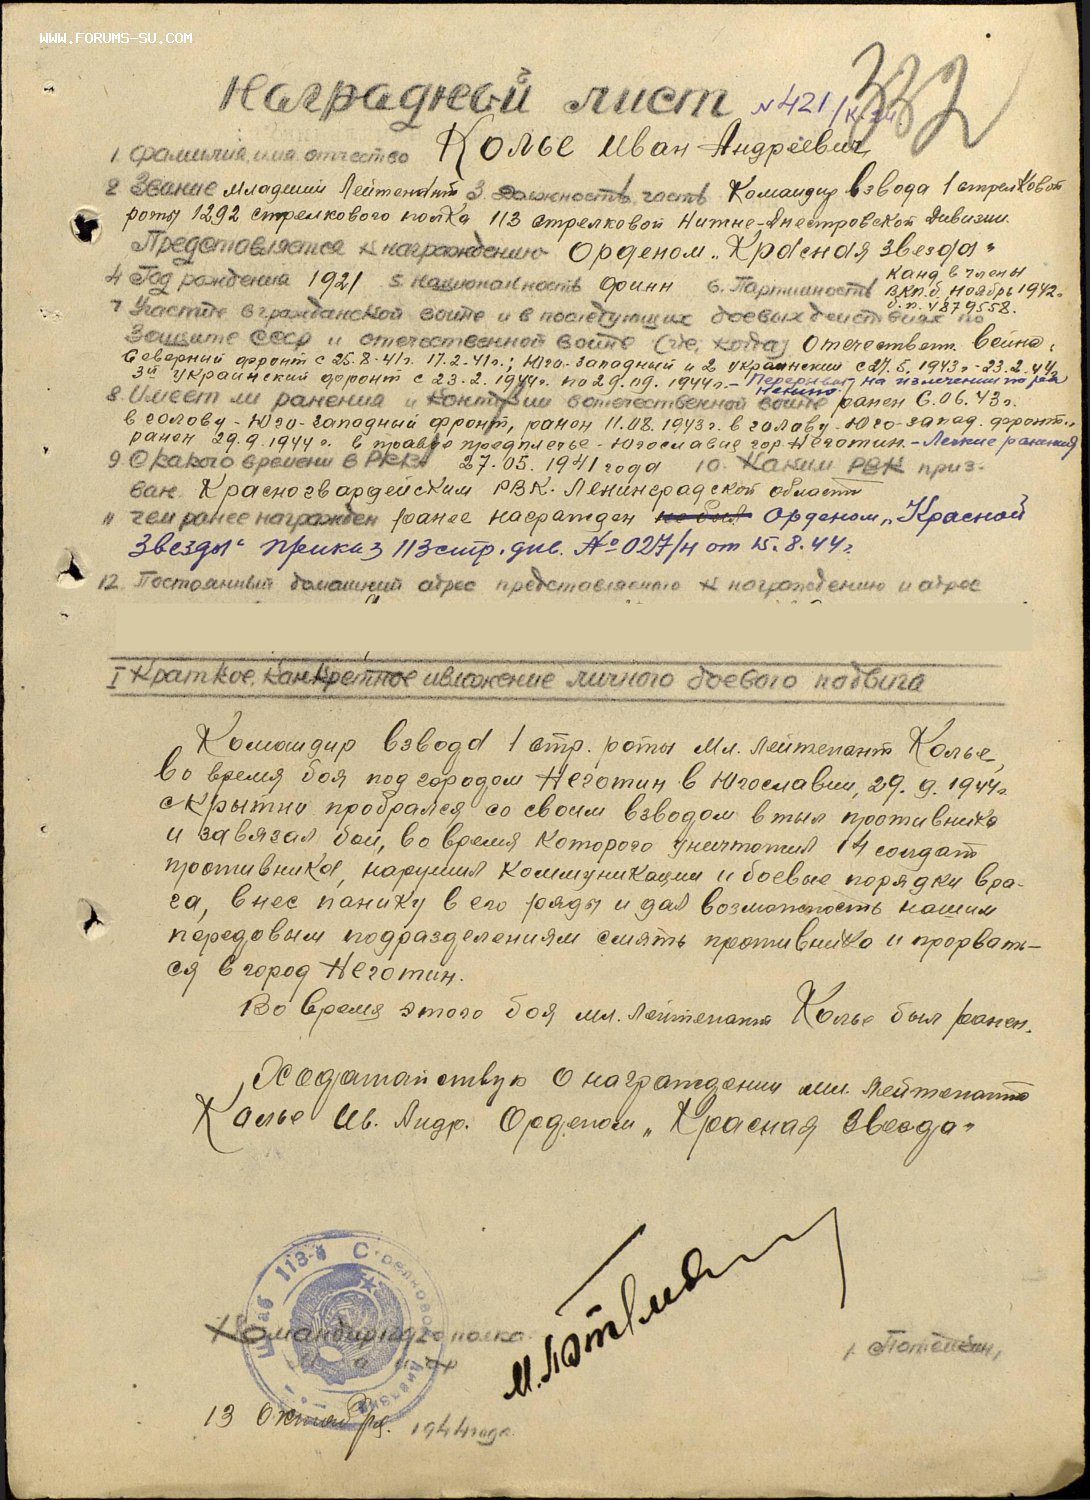 WWW.FORUMS-SU.COM
332
Наградной лист N 421/
1. Фамилия, имя, отчество Колье Иван Андреевич
2. Звание Младший Лейтенант 3. должность, часть Командир взвода 1 стрелковой
роты 1292 стрелкового полка 113 стрелковой Нижне-Днестровской Дивизии.
Представляется к награждению Орденом „Красная звезда"
4. Год рождения 1921 5. национальность финн 6. Партийность Канд. в члены
ВКП.б. Ноябрь 1942г.
б.п. №7879558.
7. Участие в гражданской войне и в последующих боевых действиях по
защите СССР и отечественной войне (где, когда) Отечествен. война:
Северный фронт с 25.8.41г. 17.2.41г.; Юго-Западный и 2 украинский с 27.5.1943г-23.2.44г.
3й украинский фронт с 23.2.1944г. по 29.09.1944г. - Перерывы на излечении по ра-
нению
8. Имеет ли ранения и контузии в отечественной войне ранен 6.06.43г.
в голову - Юго-Западный фронт, ранен 11.08.1943г. в голову - Юго-запад. фронт.
ранен 29.9.1944г. в правое предплечье - Югославия гор. Неготин. - Легкие ранения
9. С какого времени в РККА 27.05.1941 года 10. Каким РВК приз-
ван. Красногвардейским РВК. Ленинградской области
11 Чем ранее награжден ранее награжден не был Орденом „Красной
Звезды" приказ 113 стр. див. №027/н от 15.8.44г.
12. Постоянный домашний адрес представляемого к награждению и адрес
I Краткое, конкретное изложение личного боевого подвига
Командир взвода 1 стр. роты Мл. лейтенант Колье,
во время боя под городом Неготин в Югославии, 29.9.1944г
скрытно пробрался со своим взводом в тыл противника
и завязал бой, во время которого уничтожил 14 солдат
противника, нарушил коммуникации и боевые порядки вра-
га, внес панику в его ряды и дал возможность нашим
передовым подразделениям смять противника и прорвать-
ся в город Неготин.
Во время этого боя мл. лейтенант Колье был ранен.
Ходатайствую о награждении мл. лейтенанта
Колье Ив. Андр. Орденом „Красная Звезда"
Штаб 113-й Стрелковой Дивизии
Командир полка
М. Потемкин
/Потемкин/
13 Октября 1944 года.